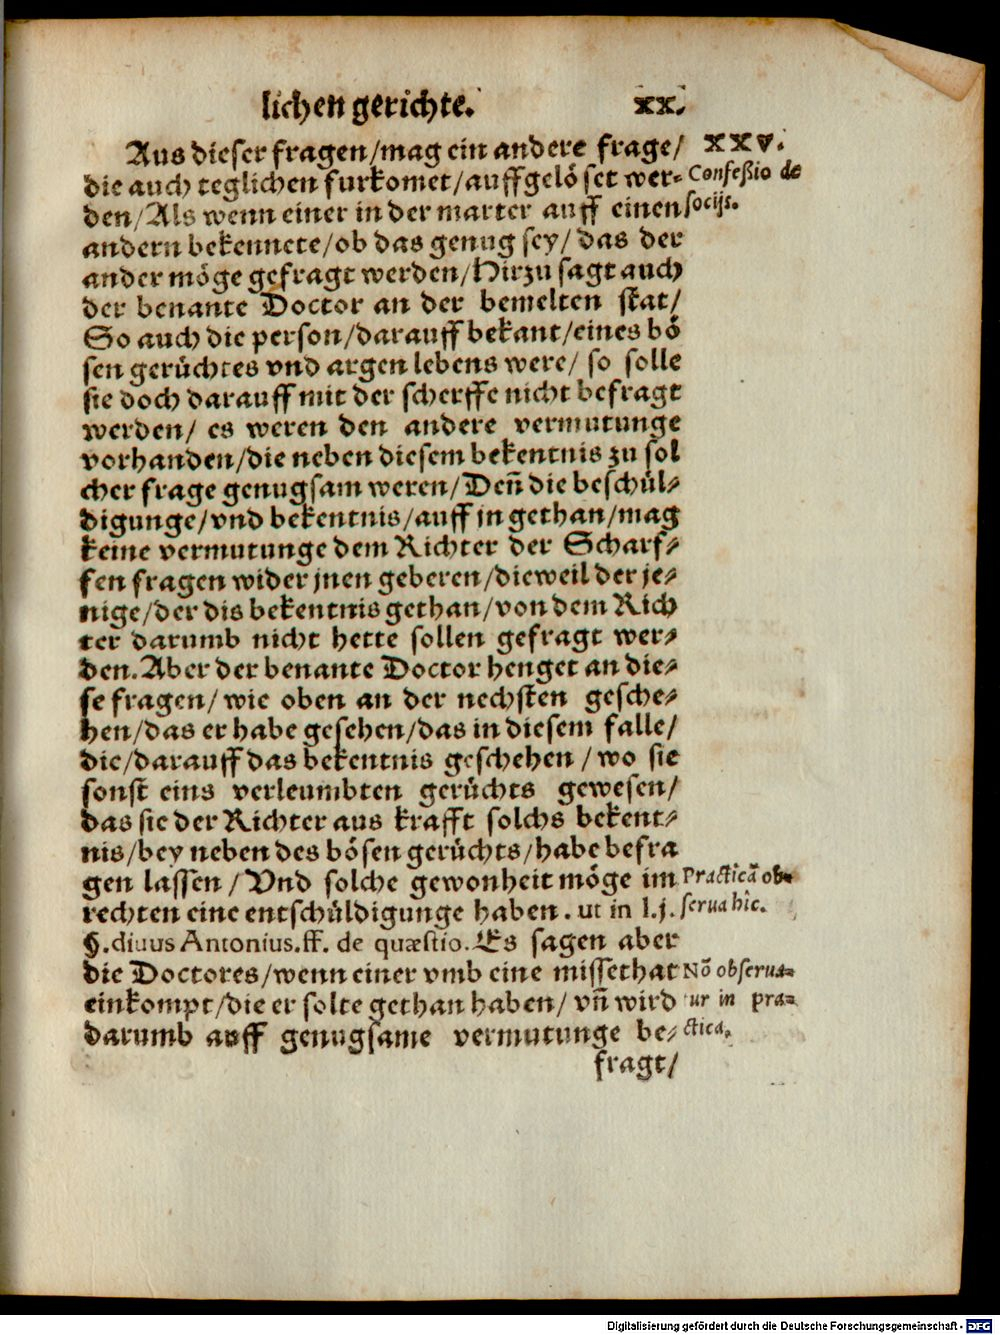 lichen gerichte. xx.
Aus dieser fragen/mag ein andere frage/ XXV.
die auch teglichen furkomet/auffgelöset wer- Confeßio de
den/Als wenn einer in der marter auff einen socijs.
andern bekennete/ob das genug sey/das der
ander möge gefragt werden/Hirzu sagt auch
der benante Doctor an der bemelten stat/
So auch die person/darauff bekant/eines bö
sen gerüchtes vnd argen lebens were/ so solle
sie doch darauff mit der scherffe nicht befragt
werden/ es weren den andere vermutunge
vorhanden/die neben diesem bekentnis zu sol
cher frage genugsam weren/Den̄ die beschül-
digunge/vnd bekentnis/auff jn gethan/mag
keine vermutunge dem Richter der Scharf-
fen fragen wider jnen geberen/dieweil der je-
nige/der dis bekentnis gethan/von dem Rich
ter darumb nicht hette sollen gefragt wer-
den. Aber der benante Doctor henget an die-
se fragen/wie oben an der nechsten gesche-
hen/das er habe gesehen/das in diesem falle/
die/darauff das bekentnis geschehen/wo sie
sonst eins verleumbten gerüchts gewesen/
das sie der Richter aus krafft solchs bekent-
nis/bey neben des bösen gerüchts/habe befra
gen lassen/Vnd solche gewonheit möge im Practicā ob-
rechten eine entschüldigunge haben. ut in l.j. serua hîc.
§. diuus Antonius. ff. de quæstio. Es sagen aber
die Doctores/wenn einer vmb eine missethat Nō obserua-
einkompt/die er solte gethan haben/ vn̄ wird ur in pra-
darumb auff genugsame vermutunge be- ctica.
fragt/
Digitalisierung gefördert durch die Deutsche Forschungsgemeinschaft - DFG